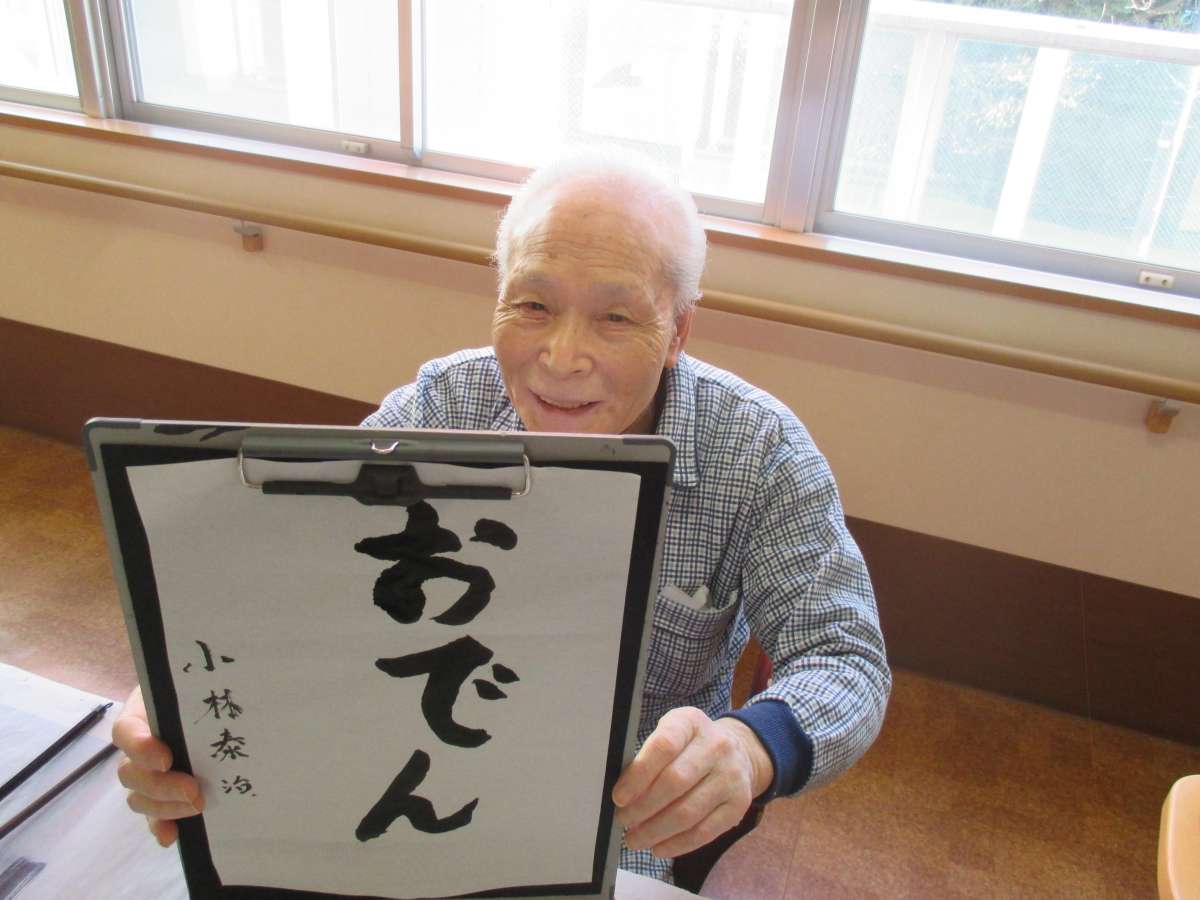 おでん
小林泰治